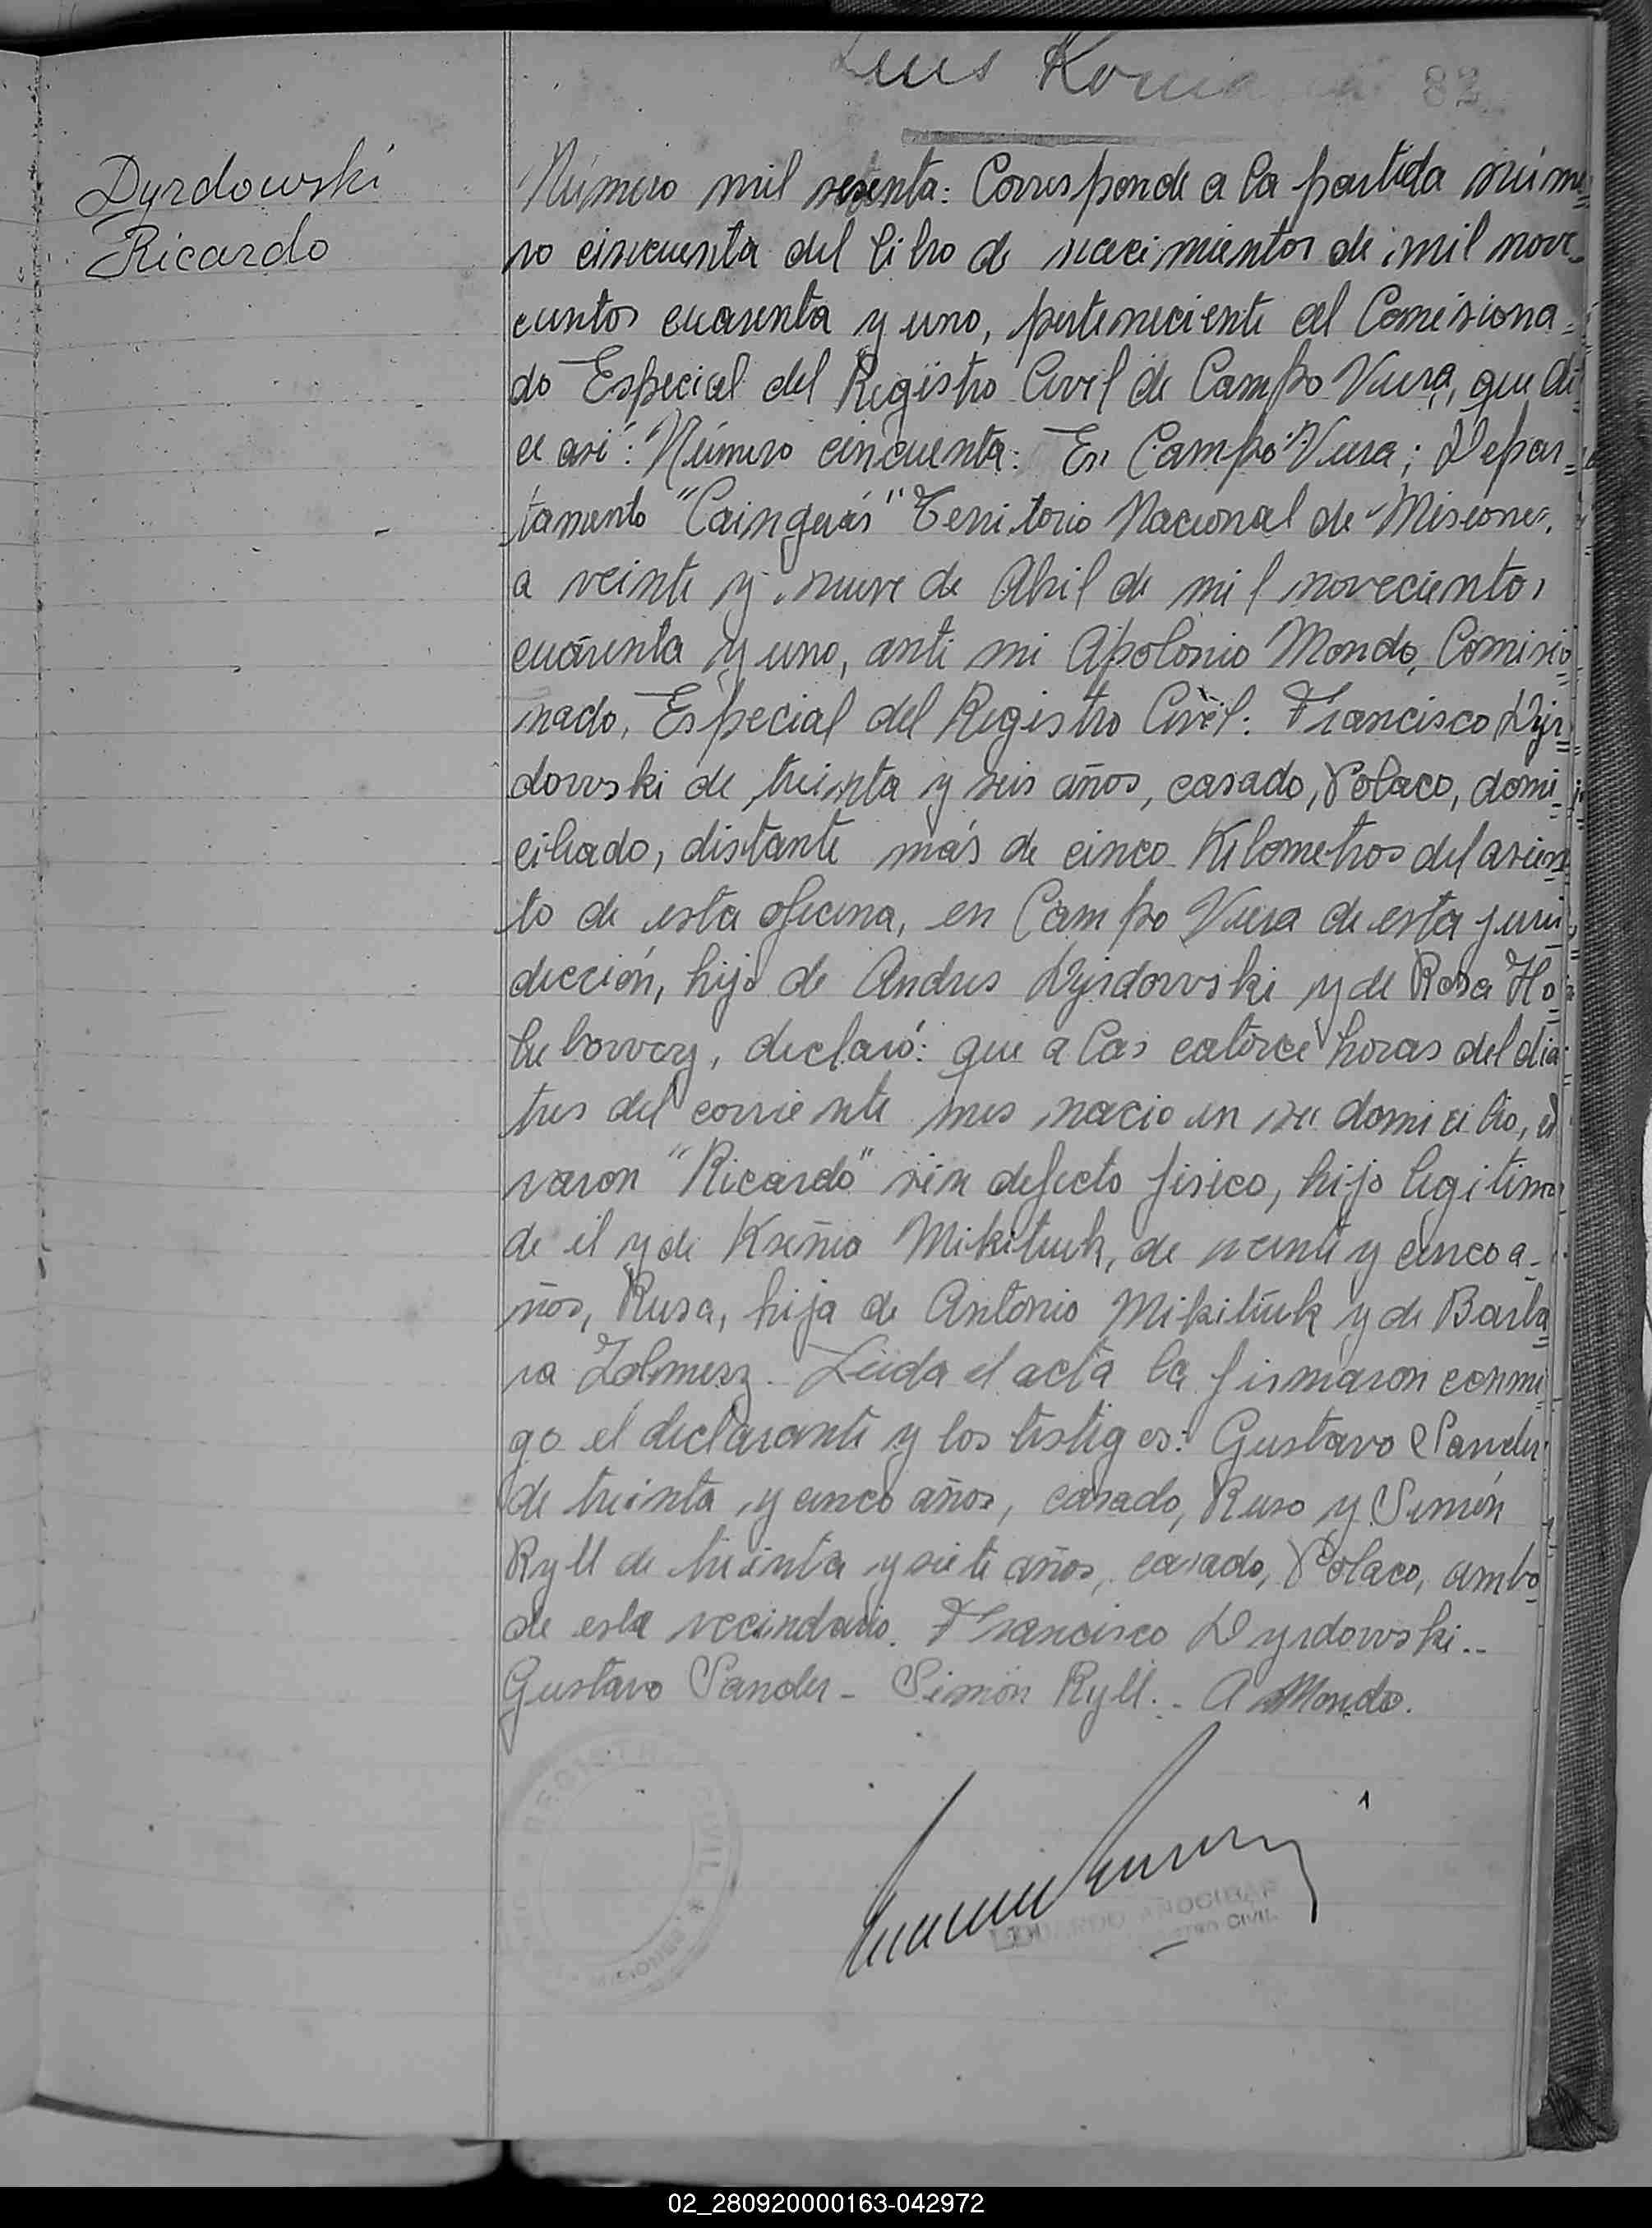 Luis
82
Dyrdowski
Ricardo
Número mil sesenta: Corresponde a la partida núme
ro cincuenta del libro de nacimientos de mil nove-
cientos cuarenta y uno, perteneciente al Comisiona=
do Especial del Registro Civil de Campo Viera, que di
ce asi: Número cincuenta: En Campo Viera; Depar=
tamento "Cainguás" Territorio Nacional de Misiones,
a veinte y nueve de Abril de mil novecientos
cuarenta y uno, ante mi Apolonio Mondo, Comisio
nado, Especial del Registro Civil: Francisco Dyr=
dowski de treinta y seis años, casado, Polaco, domi=
ciliado, distante más de cinco Kilometros del asien
to de esta oficina, en Campo Viera de esta juris
dicción, hijo de Andres Dyrdowski y de Rosa Ho=
declaró: que a las catorce horas del dia
tres del corriente mes nacio en su domicilio, el
varon "Ricardo" sin defecto fisico, hijo legitimo
de él y de Kseñia Mikituk, de veinte y cinco a-
ños, Rusa, hija de Antonio Mikituk y de Barba=
ra Leida el acta la firmaron conmi
go el declarante y los testigos: Gustavo Sander
de treinta y cinco años, casado, Ruso y Simón
Ryll de treinta y siete años, casado, Polaco, ambo
de este vecindario. Francisco Dyrdowski..
Gustavo Sander - Simón Ryll. - A Mondo.
REGISTRO CIVIL
MISIONES
EDUARDO
CIVIL
02_280920000163-042972